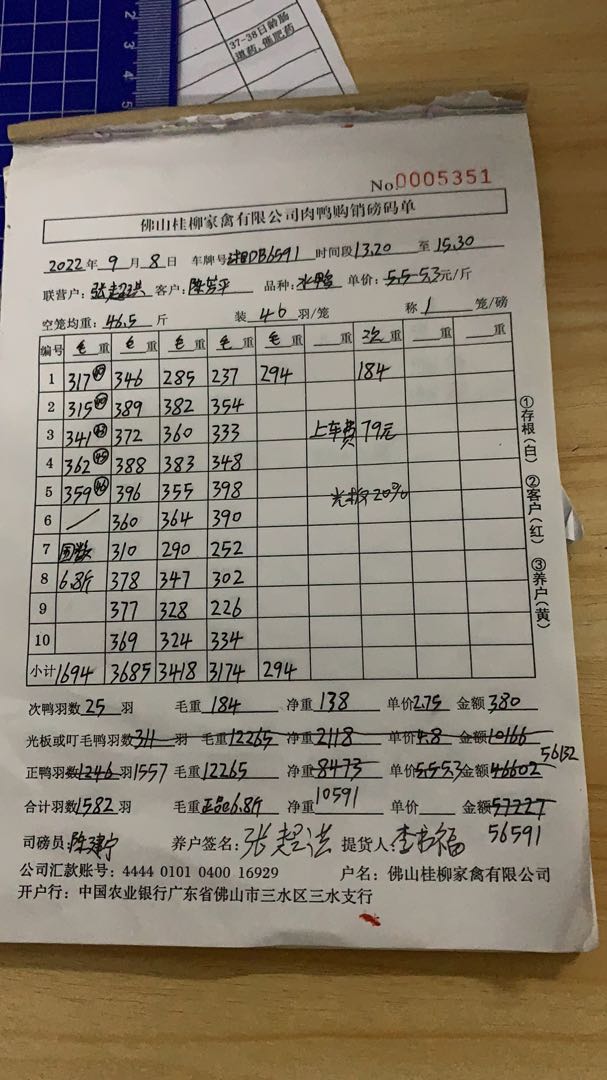 2
3
4
5
37-38日龄肠
道药,催肥药
No.0005351
佛山桂柳家禽有限公司肉鸭购销磅码单
2022年 9 月 8 日 车牌号 DB6591 时间段13.20 至 15.30
联营户: 张超洪 客户: 陈 平 品种: 水鸭 单价: 5.5-5.3元/斤
空笼均重: 46.5 斤 装 46 羽/笼 称 1 笼/磅
编号 毛重 毛重 毛重 毛重 毛重 重 次重 重 重
1 317 49 346 285 237 294 184
2 315 389 382 354
3 341 43 372 360 333 上车费 79元
4 362 45 388 383 348
5 359 46 396 355 398 光板20%
6 / 360 364 390
7 回数 310 290 252
8 6.8斤 378 347 302
9 377 328 226
10 369 324 334
小计 1694 3685 3418 3174 294
①存根(白) ②客户(红) ③养户(黄)
次鸭羽数 25 羽 毛重 184 净重 138 单价2.75 金额 380
光板或叮毛鸭羽数 311 羽 毛重 12265 净重 2118 单价4.8 金额 10166
56132
正鸭羽数1246 羽1557 毛重 12265 净重 8473 单价5.5 5.3 金额46602
合计羽数1582 羽 毛重 正品@6.8斤 净重 10591 单价 金额 57227
56591
司磅员: 陈建宁 养户签名: 张超洪 提货人: 李 福
公司汇款账号: 4444 0101 0400 16929 户名: 佛山桂柳家禽有限公司
开户行: 中国农业银行广东省佛山市三水区三水支行